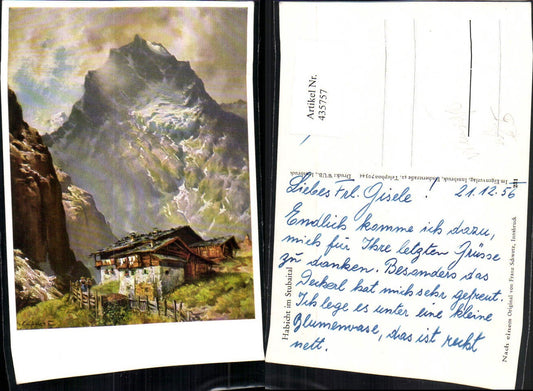 Artikel Nr.
435757
Liebes Frl. Gisele! 21.12.56
Endlich komme ich dazu,
mich für Ihre letzten Grüsse
zu danken. Besonders das
Deckerl hat mich sehr gefreut.
Ich lege es unter eine kleine
Blumenvase, das ist recht
nett.
Habicht im Stubaital
Nach einem Original von Franz Schwetz, Innsbruck
Im Eigenverlag, Innsbruck,
Druck: WUB., Innsbruck